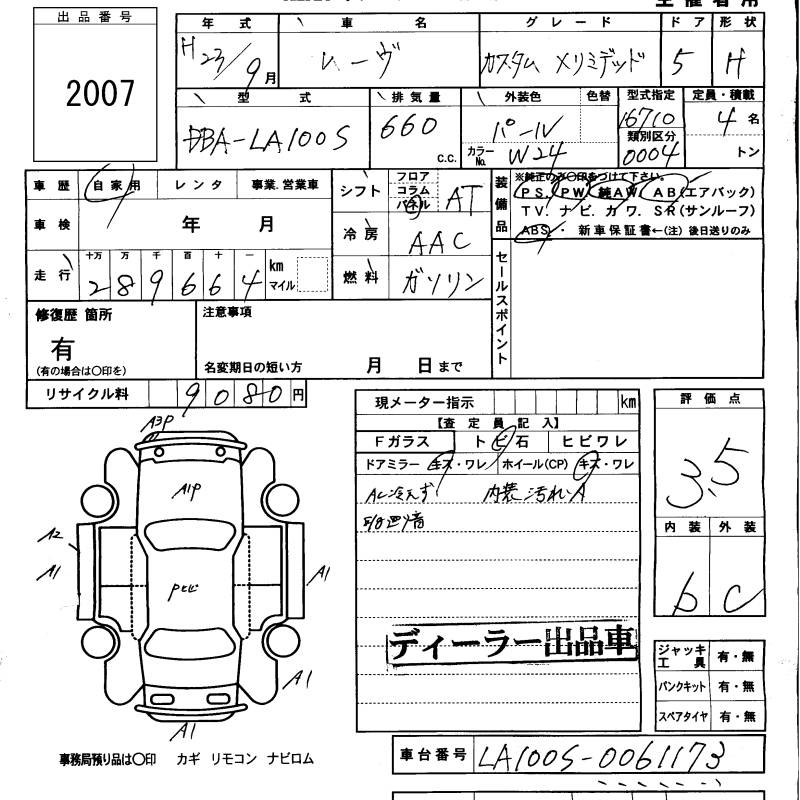 出品番号
2007
年式 車名 グレード ドア 形状
H23/9月 ムーヴ カスタム メリミテッド 5 H
型式 排気量 外装色 色替 型式指定 定員・積載
DBA-LA100S 660 c.c. パール 16710 4名
カラーNo. W24 類別区分 0004 トン
車歴 自家用 レンタ 事業.営業車
車検 年 月
走行 十万 万 千 百 十 一
289664 km マイル
シフト フロア コラム パネル AT
冷房 AAC
燃料 ガソリン
装備品
※純正のみ○印をつけて下さい。
PS. PW. 純AW. AB(エアバック)
TV. ナビ. カワ. SR(サンルーフ)
ABS・ 新車保証書←(注) 後日送りのみ
セールスポイント
修復歴 箇所
有
(有の場合は○印を)
注意事項
名変期日の短い方 月 日まで
リサイクル料 9080円
現メーター指示 km
【査定員記入】
Fガラス トビ石 ヒビワレ
ドアミラー キズ・ワレ ホイール(CP) キズ・ワレ
AC冷えず 内装汚れ・A
ディーラー出品車
評価点
3.5
内装 外装
b C
ジャッキ工具 有・無
パンクキット 有・無
スペアタイヤ 有・無
A3P
A1P
A2
A1
Pヒビ
A1
A1
A1
事務局預り品は○印 カギ リモコン ナビロム
車台番号 LA100S-0061173